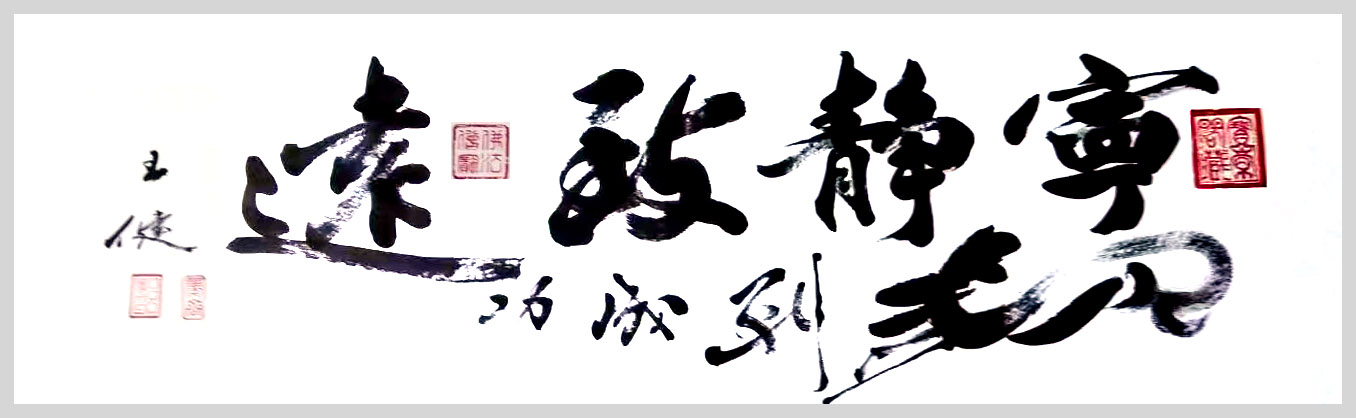 寧靜致遠
馬到成功
王健